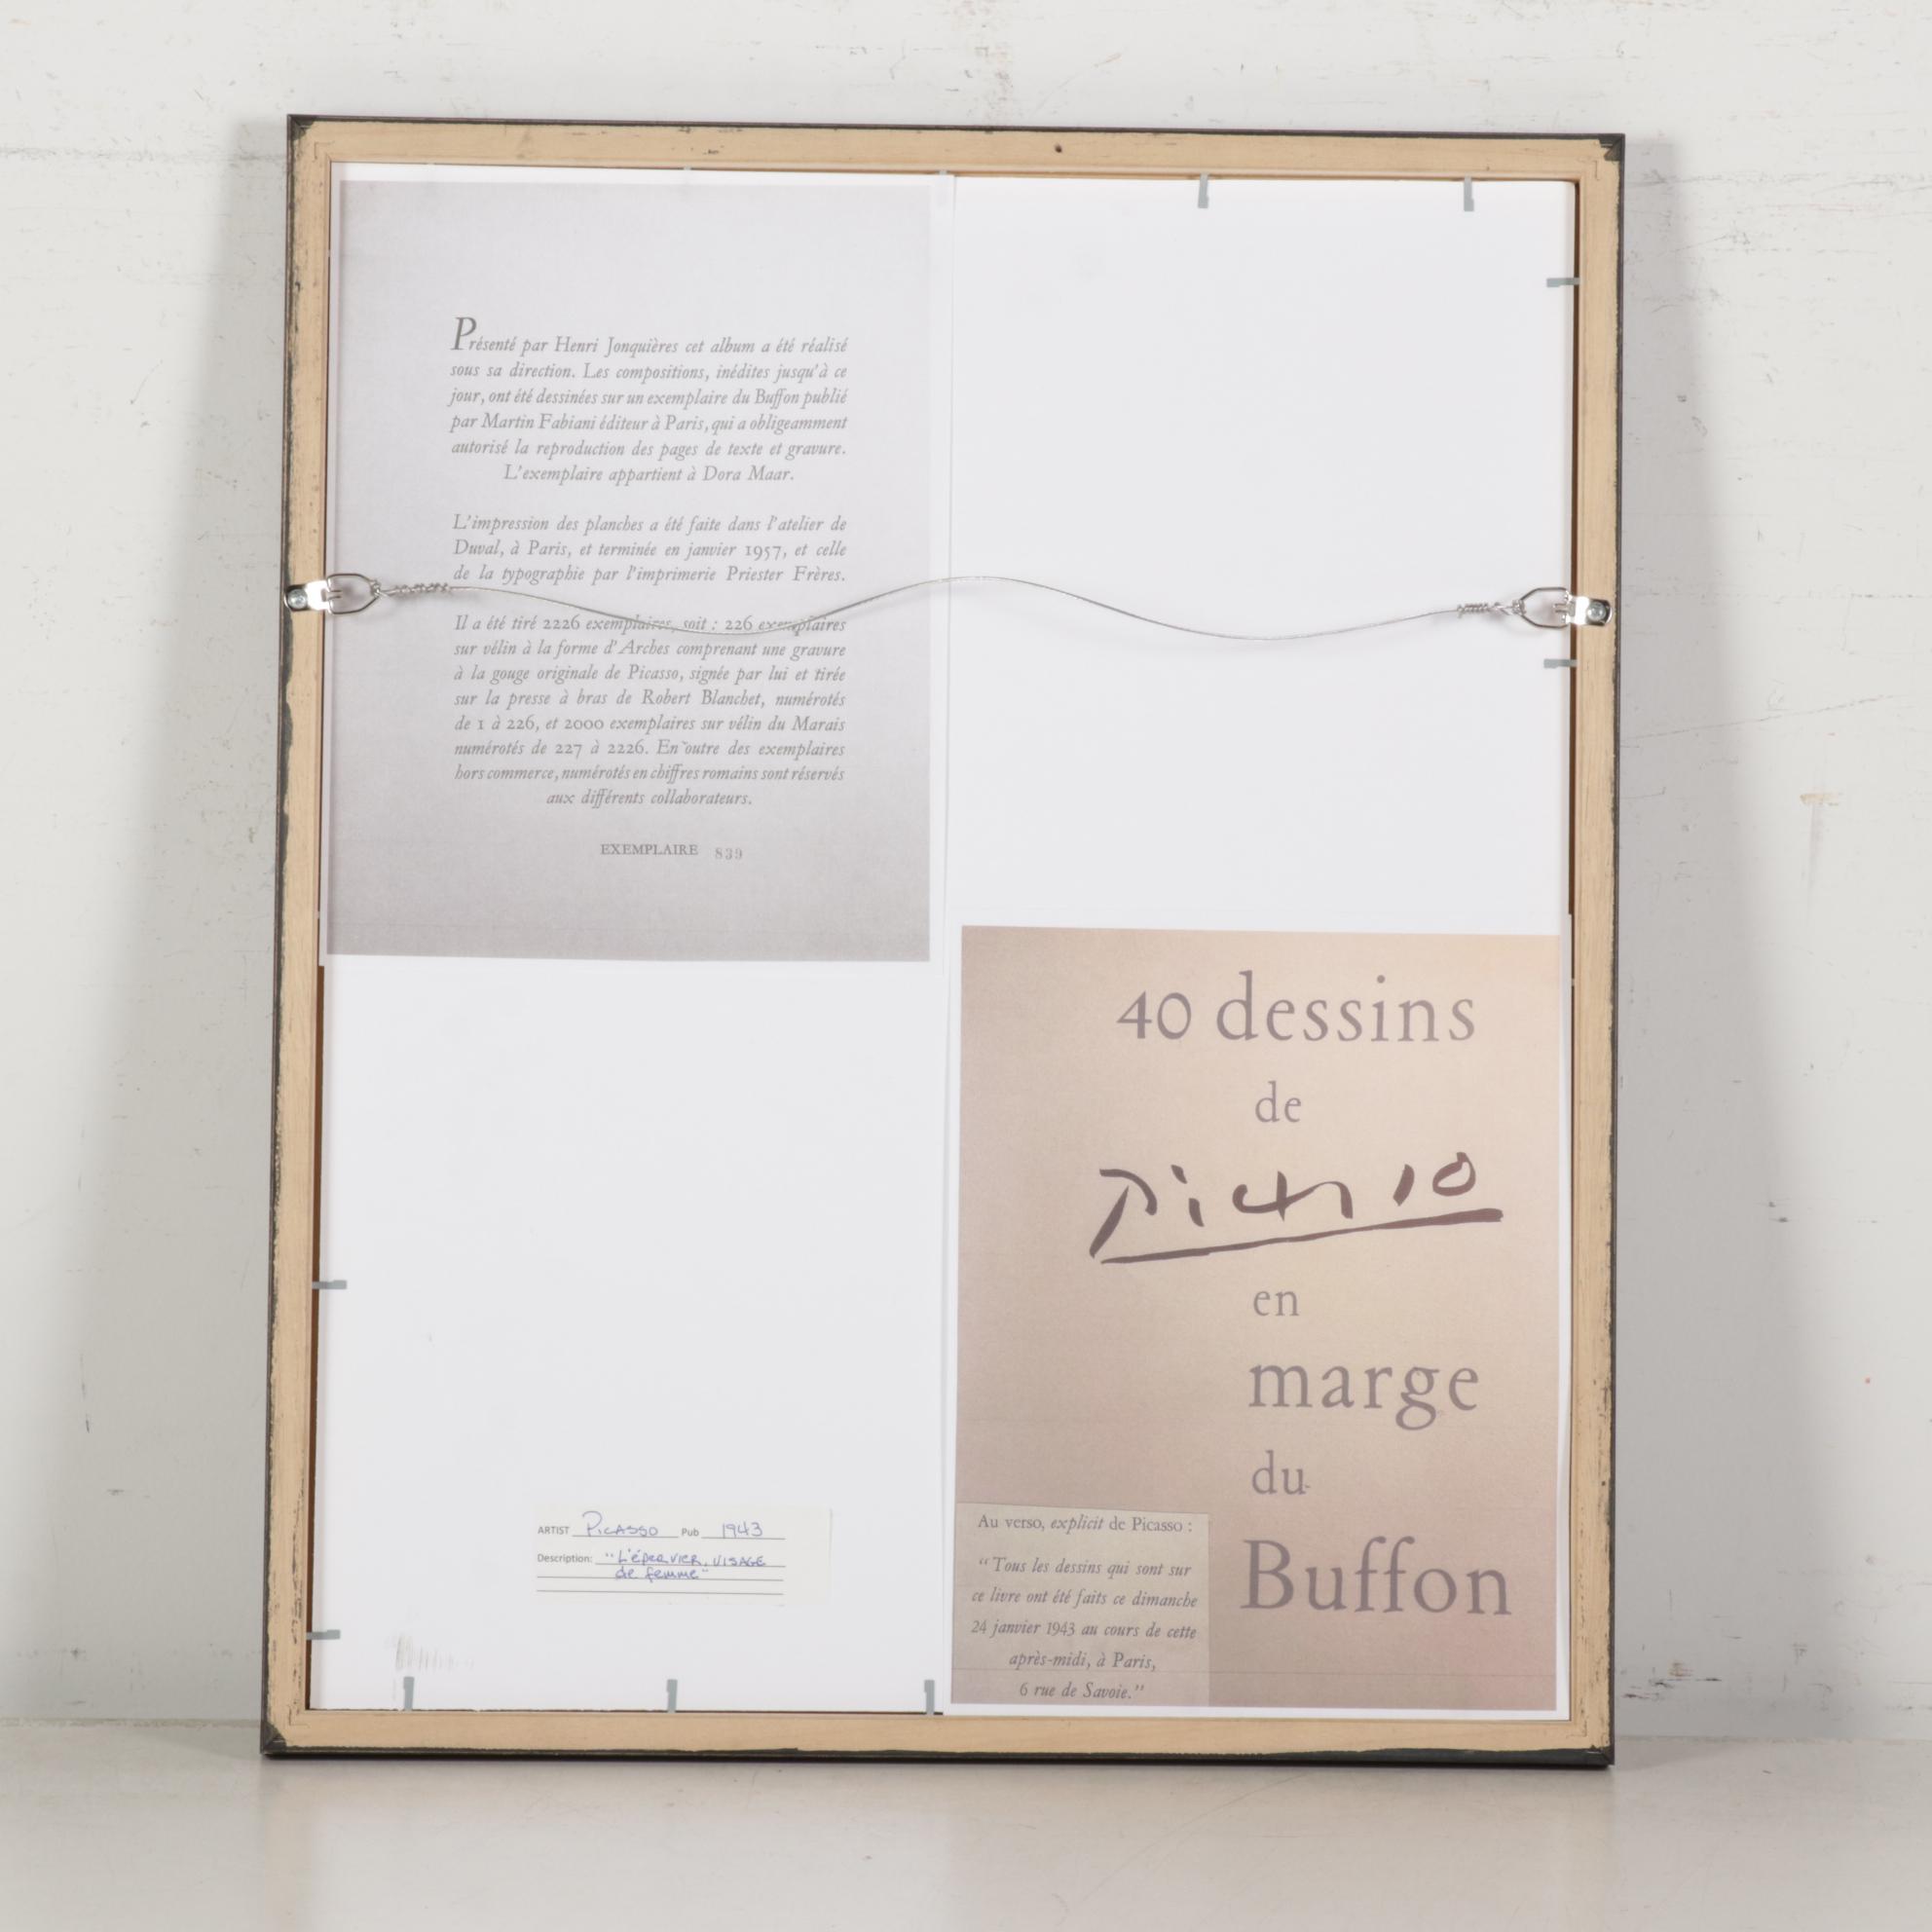 Présenté par Henri Jonquières cet album a été réalisé
sous sa direction. Les compositions, inédites jusqu'à ce
jour, ont été dessinées sur un exemplaire du Buffon publié
par Martin Fabiani éditeur à Paris, qui a obligeamment
autorisé la reproduction des pages de texte et gravure.
L'exemplaire appartient à Dora Maar.
L'impression des planches a été faite dans l'atelier de
Duval, à Paris, et terminée en janvier 1957, et celle
de la typographie par l'imprimerie Priester Frères.
Il a été tiré 2226 exemplaires, soit : 226 exemplaires
sur vélin à la forme d'Arches comprenant une gravure
à la gouge originale de Picasso, signée par lui et tirée
sur la presse à bras de Robert Blanchet, numérotés
de 1 à 226, et 2000 exemplaires sur vélin du Marais
numérotés de 227 à 2226. En outre des exemplaires
hors commerce, numérotés en chiffres romains sont réservés
aux différents collaborateurs.
EXEMPLAIRE 839
40 dessins
de
Picasso
en
marge
du
Buffon
Au verso, explicit de Picasso :
“Tous les dessins qui sont sur
ce livre ont été faits ce dimanche
24 janvier 1943 au cours de cette
après-midi, à Paris,
6 rue de Savoie.”
ARTIST Picasso Pub 1943
Description: "L'épervier, VISAGE
de femme"